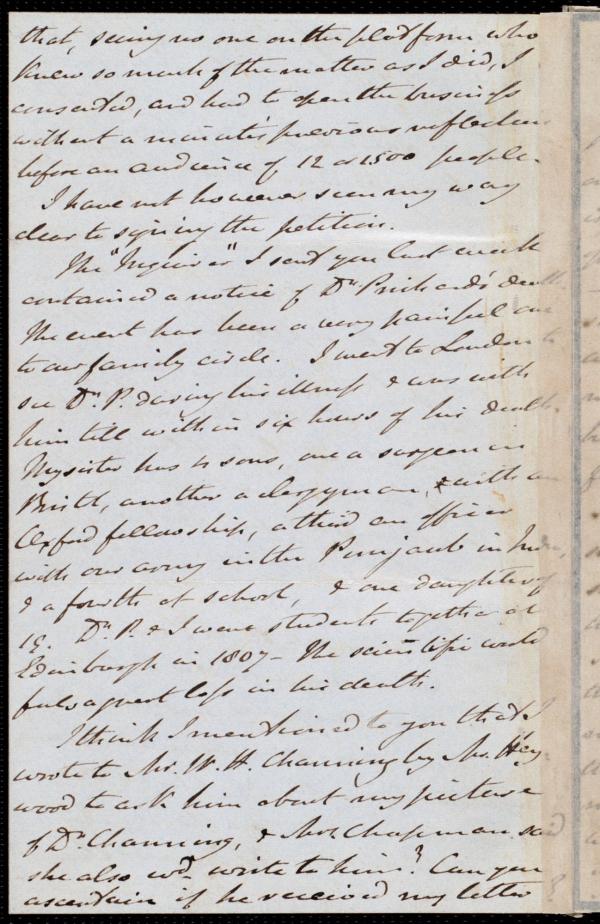 that, seeing no one on the platform who
knew so much of the matter as I did, I
consented, and had to open the business
without a minute's previous reflection
before an audience of 12 or 1500 people.
I have not however seen my way
clear to signing the petition.
The "Inquirer" I sent you last week
contained a notice of Dr. Prichard's death.
The event has been a very painful one
to our family circle. I went to London to
see Dr. P. during his illness & was with
him till within six hours of his death.
My sister has 4 sons, one a surgeon in
Bristl, another a clergyman, & with an
Oxford fellowship, a third an officer
with our army in the Punjaub in India,
& a fourth at school, & one daughter of
19. Dr. P. & I were students together at
Edinburgh in 1807 - The scientific world
feels a great loss in his death.
I think I mentioned to you that I
wrote to Mr. W. H. Channing by Mr. Hey-
wood to ask him about my picture
of Dr. Channing, & Mrs. Chapman said
she also wd. write to him? Can you
ascertain if he received my letter?